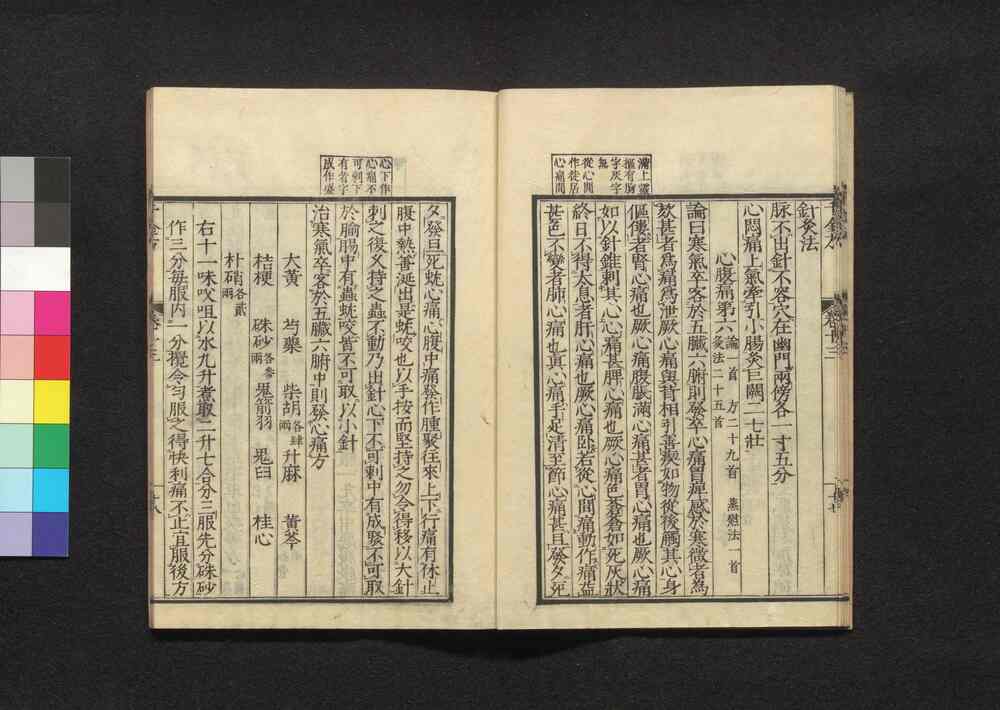 針灸法
脉不出針不容穴在幽門兩傍各一寸五分
心悶痛上氣牽引小腸灸巨闕二七壯
心腹痛第六論一首 方二十九首 熨法一首
灸法二十五首
論曰寒氣卒客於五臟六腑則發卒心痛胃痺感於寒微者爲
欬甚者爲痛爲泄厥心痛與背相引善瘈如物從後觸其心身
傴僂者腎心痛也厥心痛腹脹滿心痛甚者胃心痛也厥心痛
如以針錐刺其心心痛甚脾心痛也厥心痛色蒼蒼如死灰狀
終日不得太息者肝心痛也厥心痛臥若從心間痛動作痛益
甚色不變者肺心痛也真心痛手足清至節心痛甚旦發夕死
滿上靈
樞有胸
字灰字
無
從心間
作徒居
心痛間
夕發旦死蚘心痛心腹中痛發作腫聚往來上下行痛有休止
腹中熱善涎出是蚘咬也以手按而堅持之勿令得移以大針
刺之復久持之蟲不動乃出針心下不可刺中有成聚不可取
於腧腸中有蟲蚘咬皆不可取以小針
治寒氣卒客於五臟六腑中則發心痛方
大黃 芍藥 柴胡各肆兩 升麻 黃芩
桔梗 硃砂各參兩 鬼箭羽 鬼臼 桂心
朴硝各貳兩
右十一味㕮咀以水九升煮取二升七合分三服先分硃砂
作三分每服內一分攪令勻服之得快利痛不止宜服後方
心下作
心痛不
可刺下
有者字
成作盛